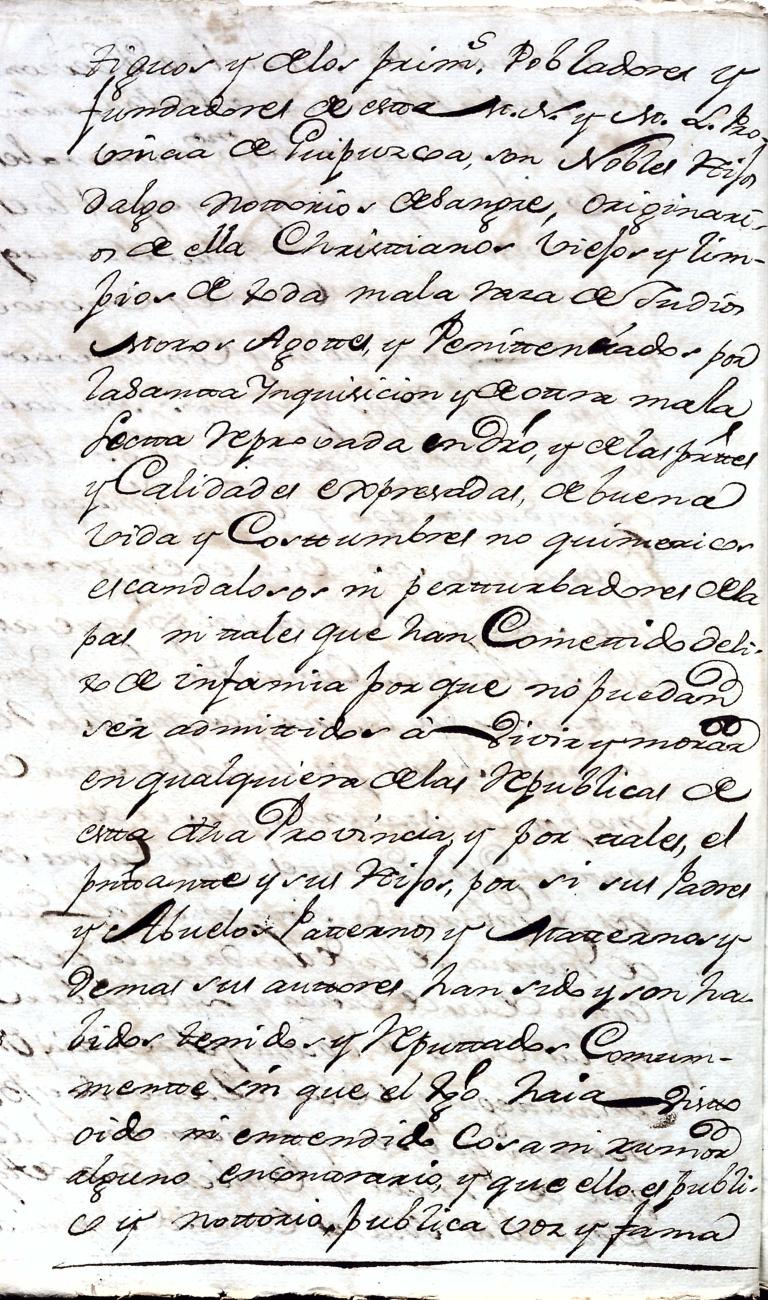 tiguos y de los prim.s Pobladores y
fundadores de esta M. N. y M. L. Pro-
vincia de Guipuzcoa, son Nobles Hijos
dalgo nottorios de Sangre, originari-
os de ella Christtianos Viejos y lim-
pios de toda mala raza de Judios
Moros Agottes, y Penittenciados por
la Santta Inquisicion y de ottra mala
Sectta reprovada en Dro, y de las prttes
y Calidades expresadas, de buena
vida y Costtumbres no quimericos
escandalosos ni pertturbadores de la
pas ni ttales que han Comettido deli-
to de infamia por que no puedan
ser admittidos à vivir y morar
en qualquiera de las republicas de
estta dha Provincia, y por ttales, el
pnttantte y sus Hijos, por si sus Padres
y Abuelos Patternos y Matternos y
Demas sus auttores han sido y son ha-
bidos tenidos y reputtados Comun-
mentte sin que el tgo haia vistto
oido ni enttendido Cosa ni rumor
alguno en conttrario, y que ello es publi-
co y nottorio, publica voz y fama